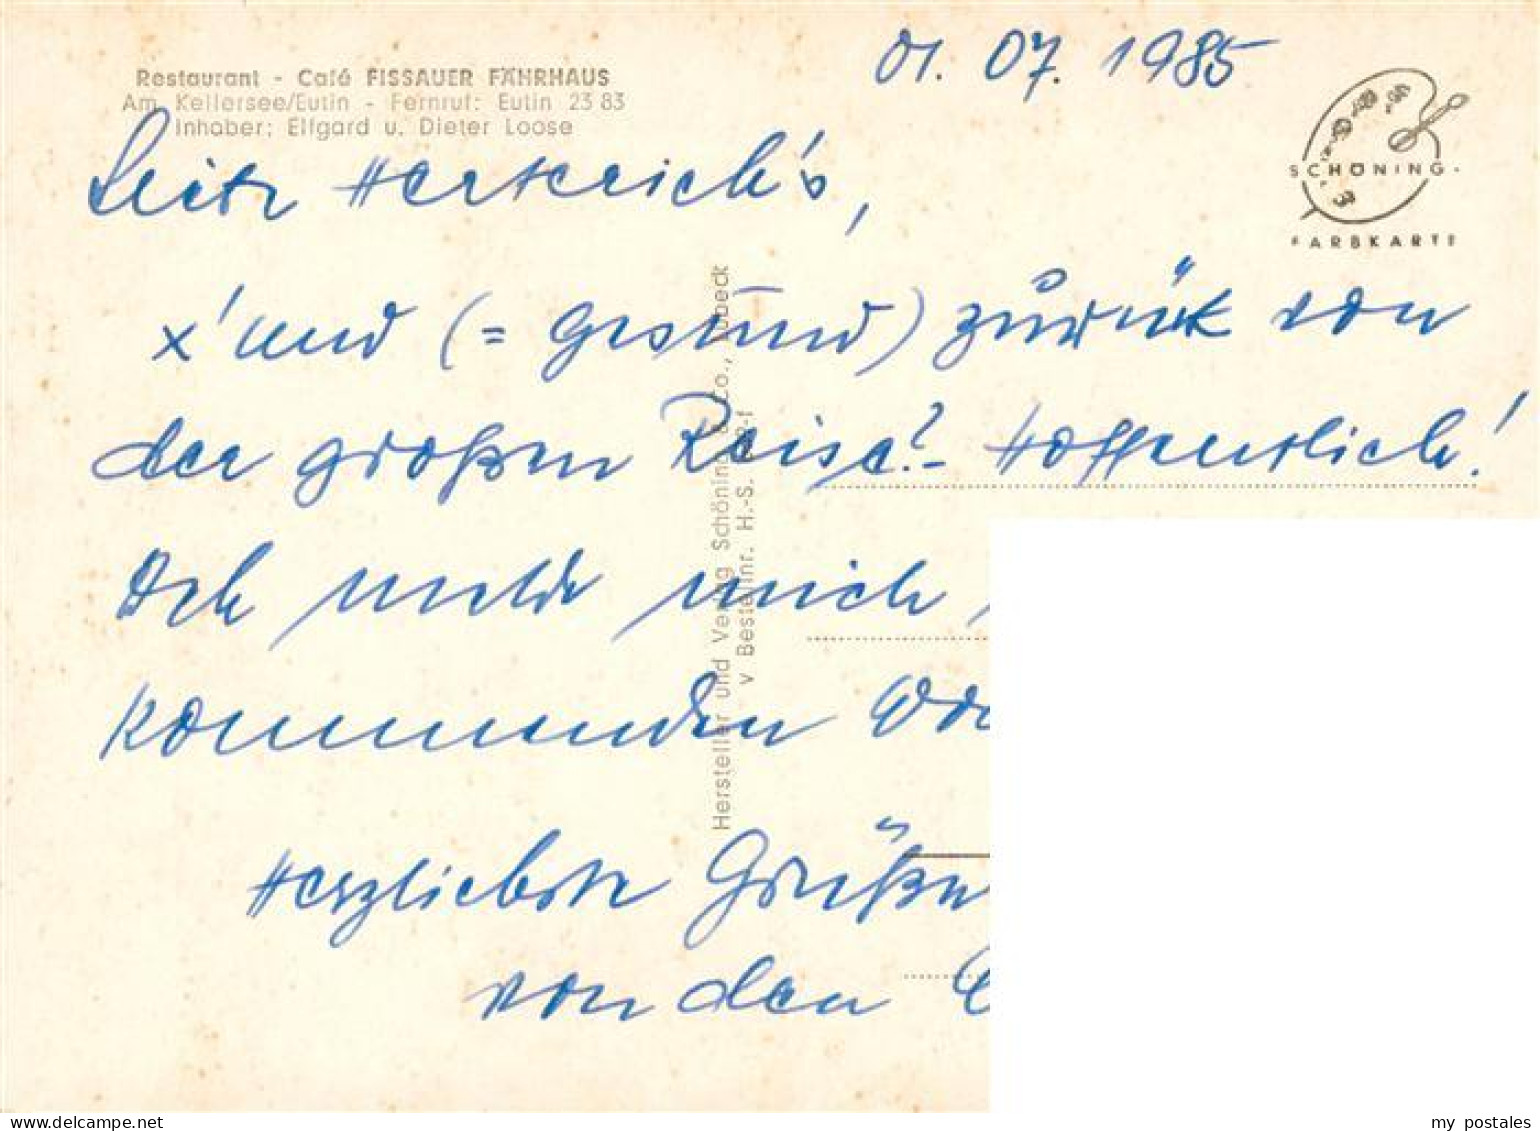 01. 07. 1985
Restaurant - Café FISSAUER FÄHRHAUS
Am Kellersee/Eutin - Fernruf: Eutin 23 83
Inhaber: Elfgard u. Dieter Loose
SCHÖNING
FARBKARTE
Hertereich's,
x'und (= gesund) zurück von
der großen Reise? - Hoffentlich!
Ich melde mich
kommenden
Herzlichste Grüße
von den
Hersteller und Verlag Schöning & Co., Lübeck
Bestellnr. H.-S.
delcampe.net
my_postales